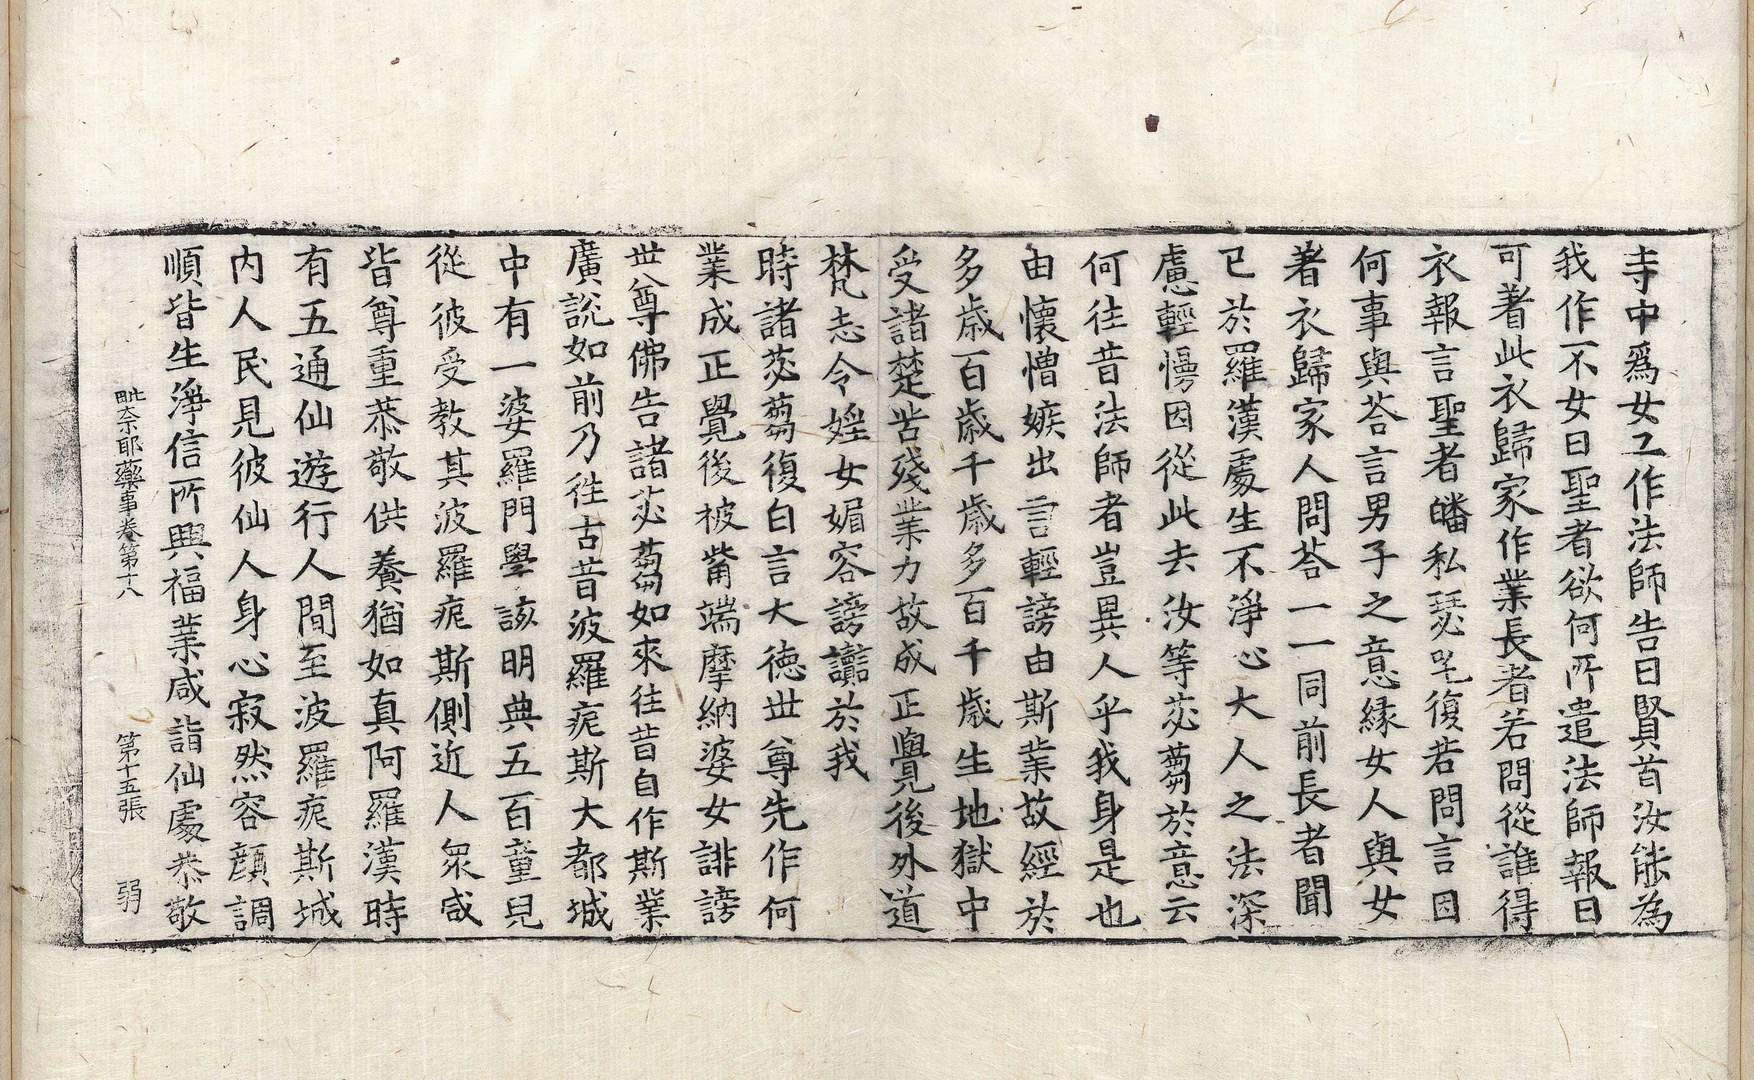 寺中爲女工作法師告曰賢首汝能為
我作不女曰聖者欲何所遣法師報曰
可著此衣歸家作業長者若問從誰得
衣報言聖者皤私瑟吒復若問言因
何事與荅言男子之意緣女人與女
著衣歸家人問荅一一同前長者聞
已於羅漢處生不淨心大人之法深
慮輕慢因從此去汝等苾蒭於意云
何往昔法師者豈異人乎我身是也
由懷憎嫉出言輕謗由斯業故經於
多歳百歳千歳多百千歳生地獄中
受諸楚苦殘業力故成正覺後外道
梵志令婬女媚容謗讟於我
時諸苾蒭復白言大德世尊先作何
業成正覺後被觜端摩納婆女誹謗
世尊佛告諸苾蒭如來往昔自作斯業
廣說如前乃徃古昔波羅痆斯大都城
中有一婆羅門學該明典五百童兒
從彼受教其波羅痆斯側近人衆咸
皆尊重恭敬供養猶如真阿羅漢時
有五通仙遊行人間至波羅痆斯城
内人民見彼仙人身心寂然容顔調
順皆生淨信所興福業咸詣仙處恭敬
毗奈耶藥事卷第十八 第十五張 弱